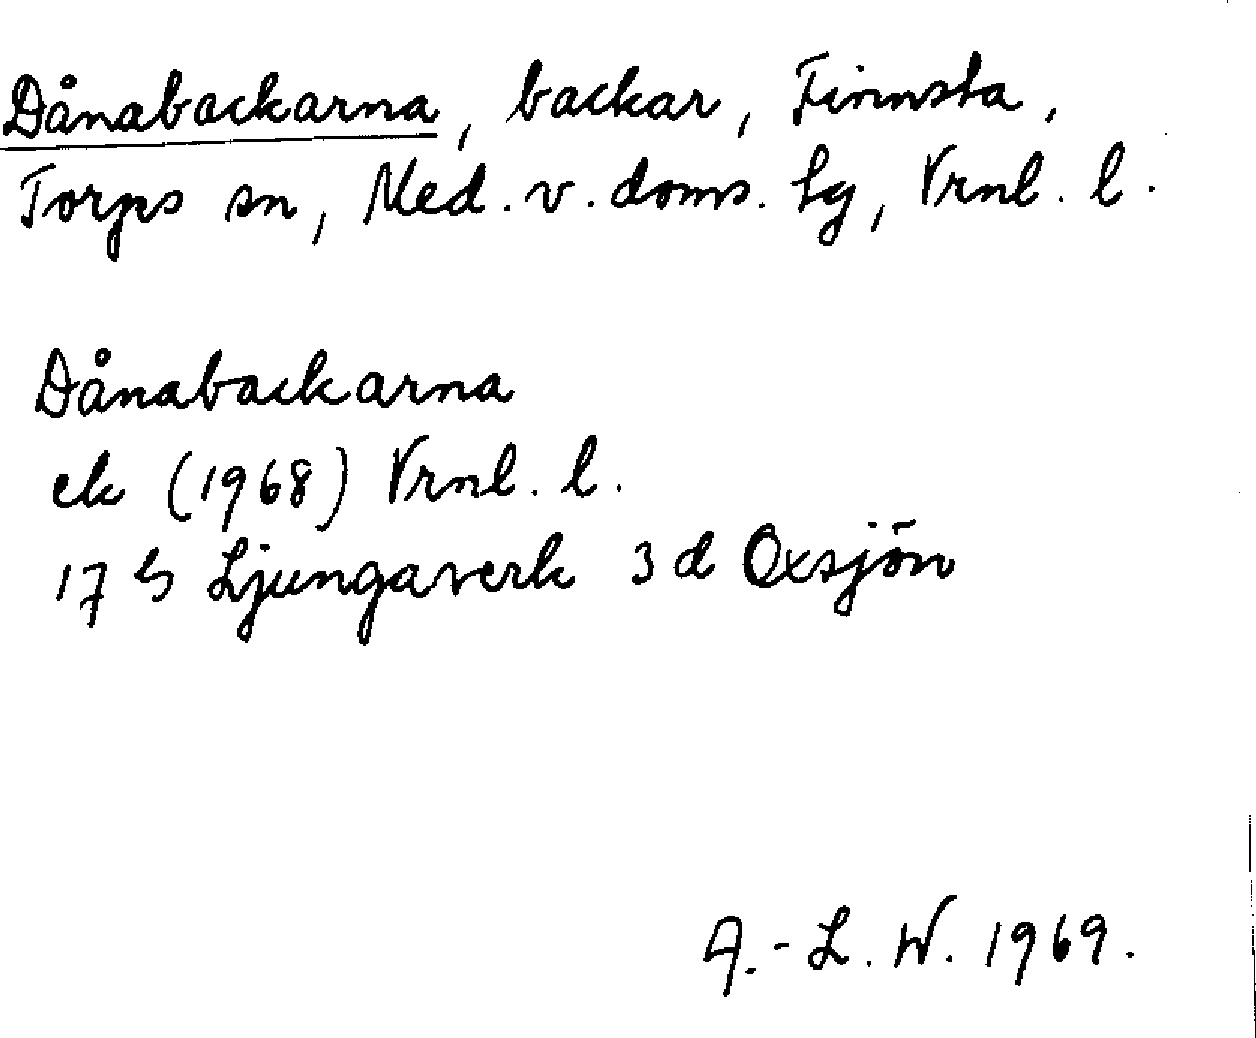 Dånabackarna, backar, Finnsta,
Torps sn, Med. v. doms. lg, Vrnl. l.
Dånabackarna
ek (1968) Vrnl. l.
17 G Ljungaverk 3 d Oxsjön
A.-L. W. 1969.